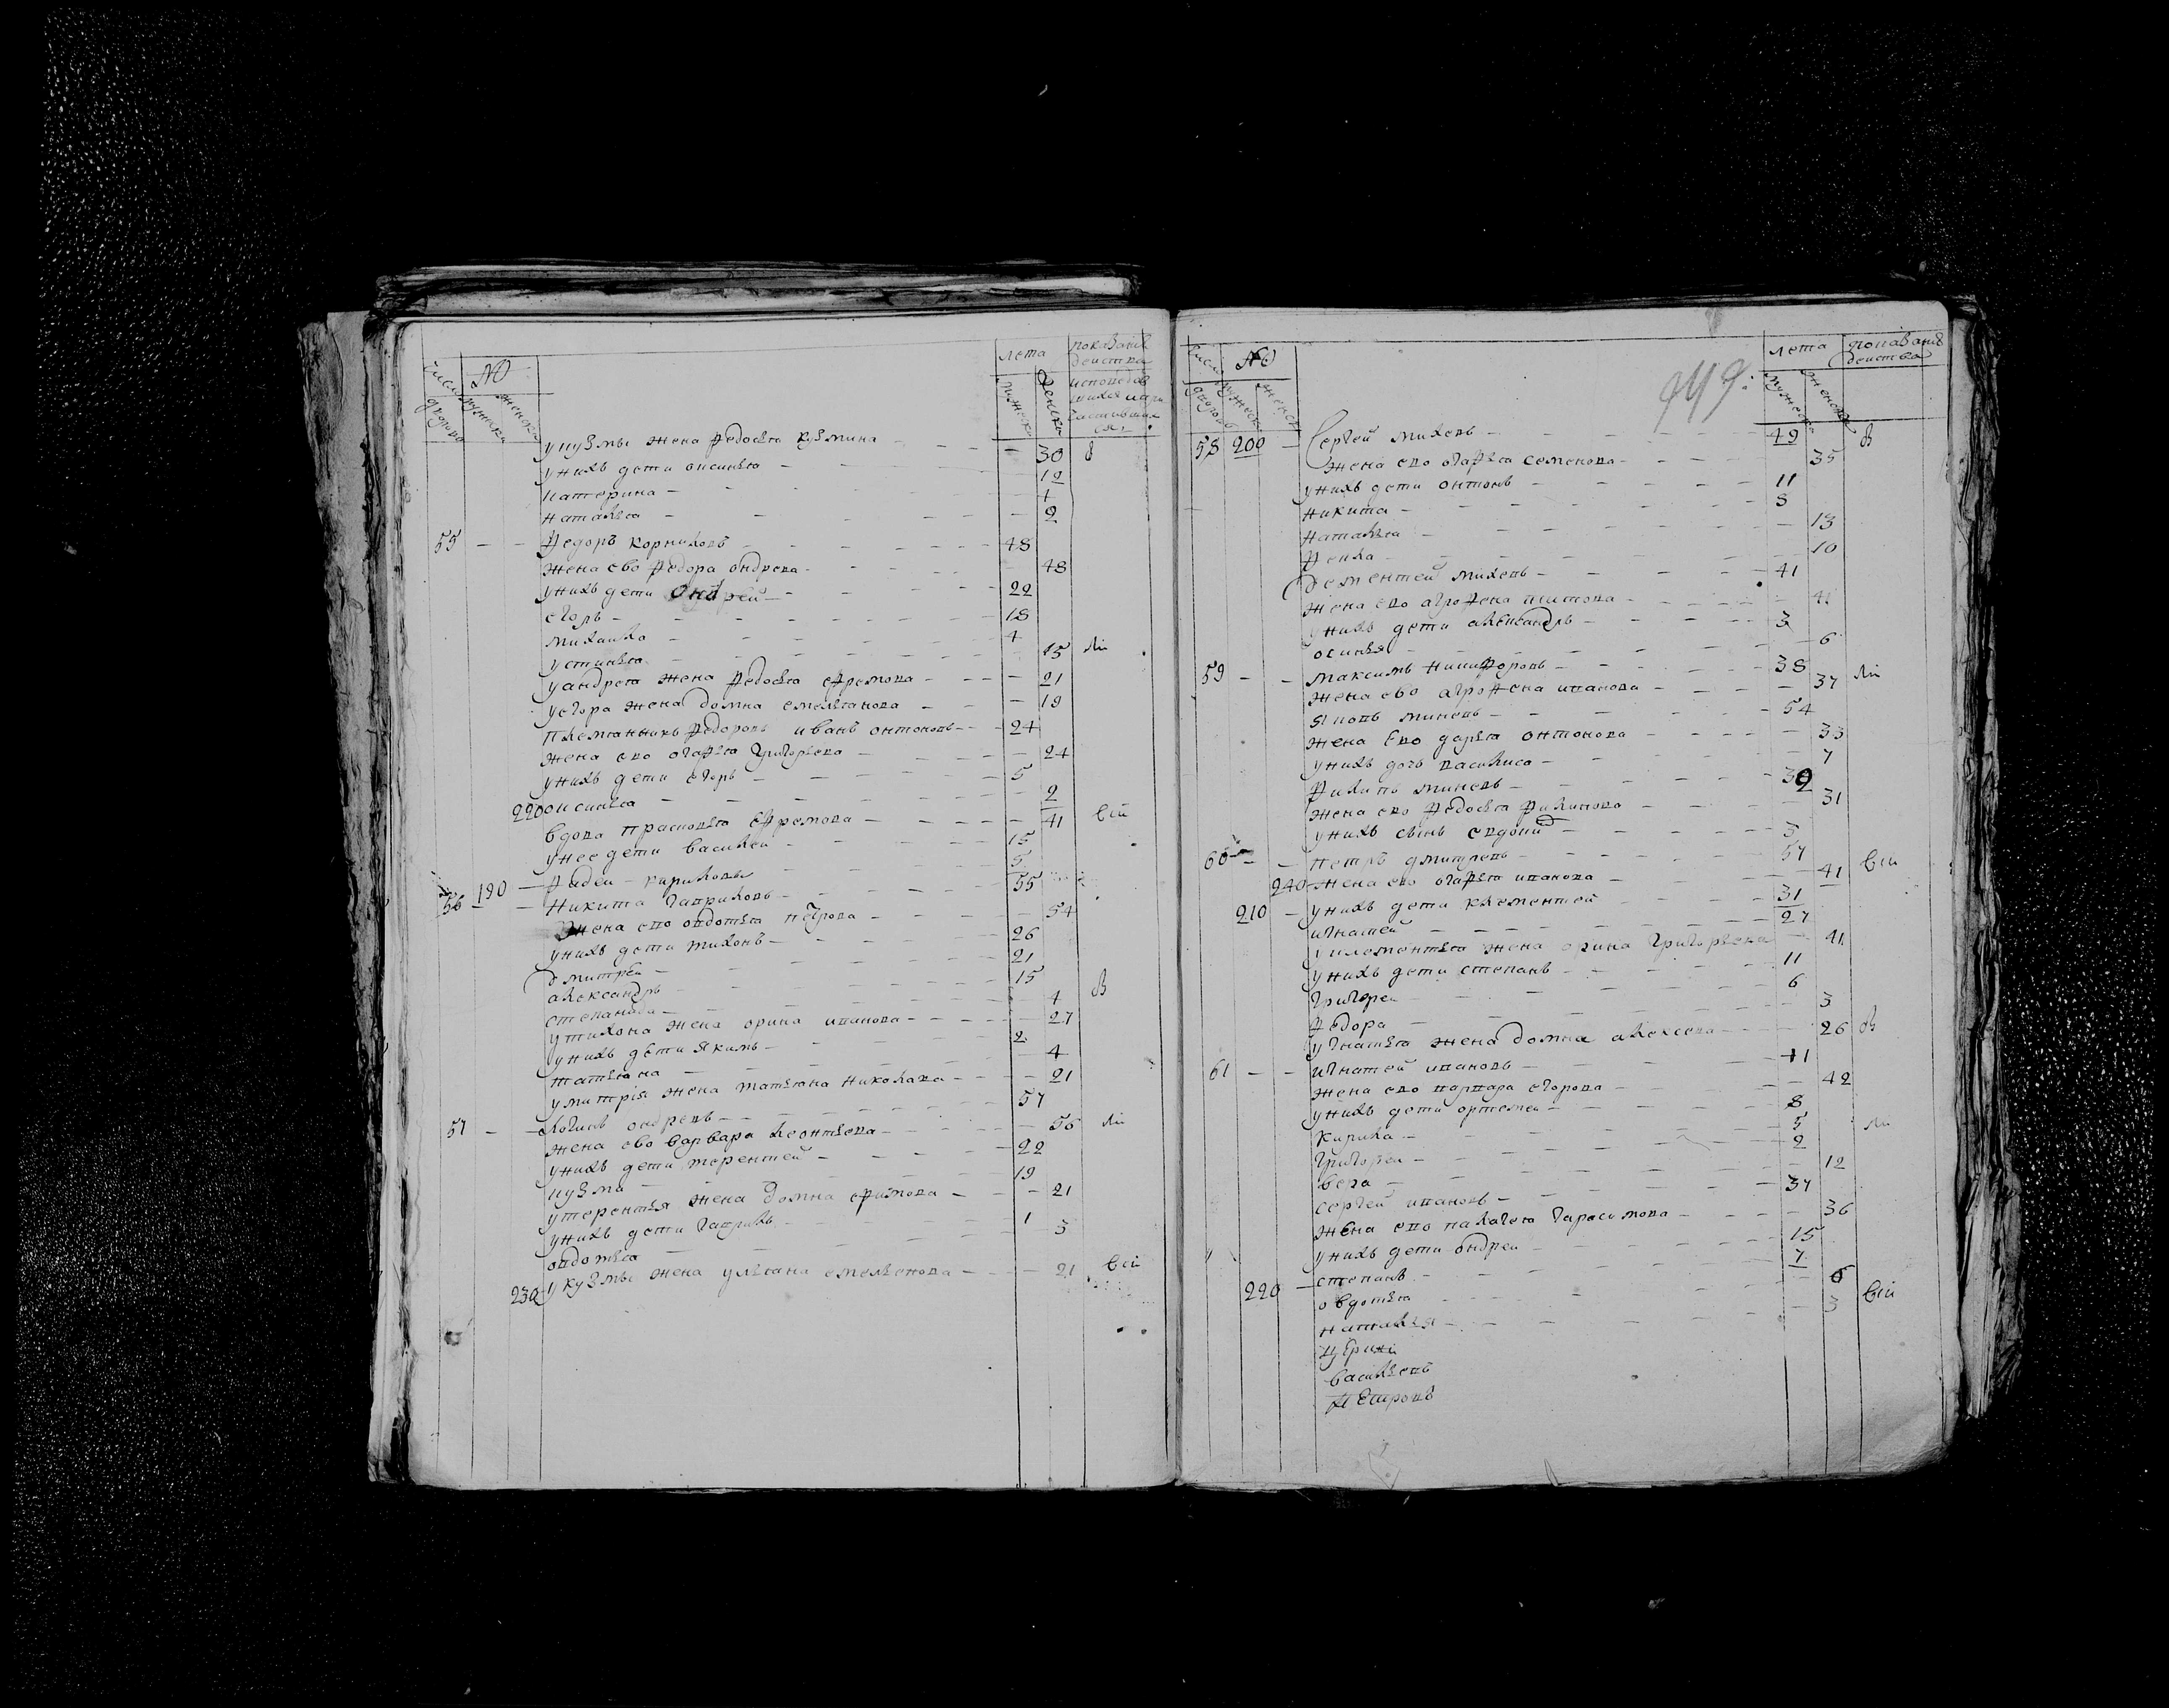 число дворовъ № мужеска женска лета мужеска женска показание деиства исповедав шихся и при частивших ся.
у кузмы жена федосья кузмина - - 30 в
у нихъ дети оксинья - 12
катерина - 4
наталья - 2
55 - - федоръ корниловъ - 48
жена ево федора андрева - 48
у нихъ дети Онд рей - 22
егоръ - 18
михаило - 4
устинья - 15 ли
у андрея жена федосья ефремова - 21
у егора жена домна емельянова - 19
племянникъ федоровъ иванъ онтоновъ - 24
жена ево огафья григорьева - 24
у нихъ дети егоръ - 5
220 оксинья - 2
вдова прасковья ефремова - 41 сiи
у нее дети василей - 15
190 - фадеи - кириловы 5
56 - Никита гавриловъ - 55
жена ево овдотья петрова - 54
у нихъ дети тихонъ - 26
дмитрей - 21
александръ - 15
степанида - 4 в
у тихона жена орина иванова - 27
у нихъ дети якимъ - 2
татьяна - 4
у митрiя жена татьяна николава - 21
57 - - логинъ ондревъ - 57
жена ево варвара леонтьева - 56 ли
у нихъ дети терентей - 22
кузма - 19
у терентья жена домна ефимова - 21
у нихъ дети гаврилъ - 1
овдотья - 3
230 у кузмы жена ульяна емельенова - 21 сiи
число дворовъ № мужеска женска лета мужеска женска показание деиства
449.
58 200 - Сергей михевъ - 49 в
жена ево огафья семенова - 35
у нихъ дети онтонъ - 11
никита - 8
наталья - 13
фекла - 10
дементей михевъ - 41
жена ево агрофена титова - 41
у нихъ дети александръ - 3
осинья - 6
59 - - максимъ никифоровъ - 38
жена ево агрофена иванова - 37 ли
яковъ миневъ - 54
жена Ево дарья онтонова - 33
у нихъ дочь василиса - 7
филипъ миневъ - 39
жена ево федосья филипова - 31
у нихъ сынъ евдоким - 3
60 - - петръ дмитревъ - 57
240 жена ево огафья иванова - 41 сiи
210 - у нихъ дети клементей - 31
игнатей - 27
у клементья жена орина григорьева - 41
у нихъ дети степанъ - 11
григореи - 6
федора - 3
у игнатья жена домна алексева - 26 в
61 - - игнатей ивановъ - 41
жена ево варвара егорова - 42
у нихъ дети ортемеи - 8
кирила - 5 ли
григореи - 2
вера - 12
сергей ивановъ - 37
жена ево палагея гарасимова - 36
у нихъ дети ондреи - 15
220 - степанъ - 7
овдотья - 6 сiи
наталья - 3
василевъ
петровъ